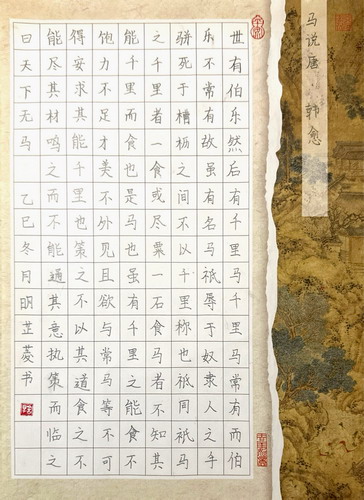 马说 唐·韩愈
世有伯乐然后有千里马千里马常有而伯
乐不常有故虽有名马祇辱于奴隶人之手
骈死于槽枥之间不以千里称也祇同祇马
之千里者一食或尽粟一石食马者不知其
能千里而食也是马也虽有千里之能食不
饱力不足才美不外见且欲与常马等不可
得安求其能千里也策之不以其道食之不
能尽其材鸣之而不能通其意执策而临之
曰天下无马 乙巳冬月明芷菱书